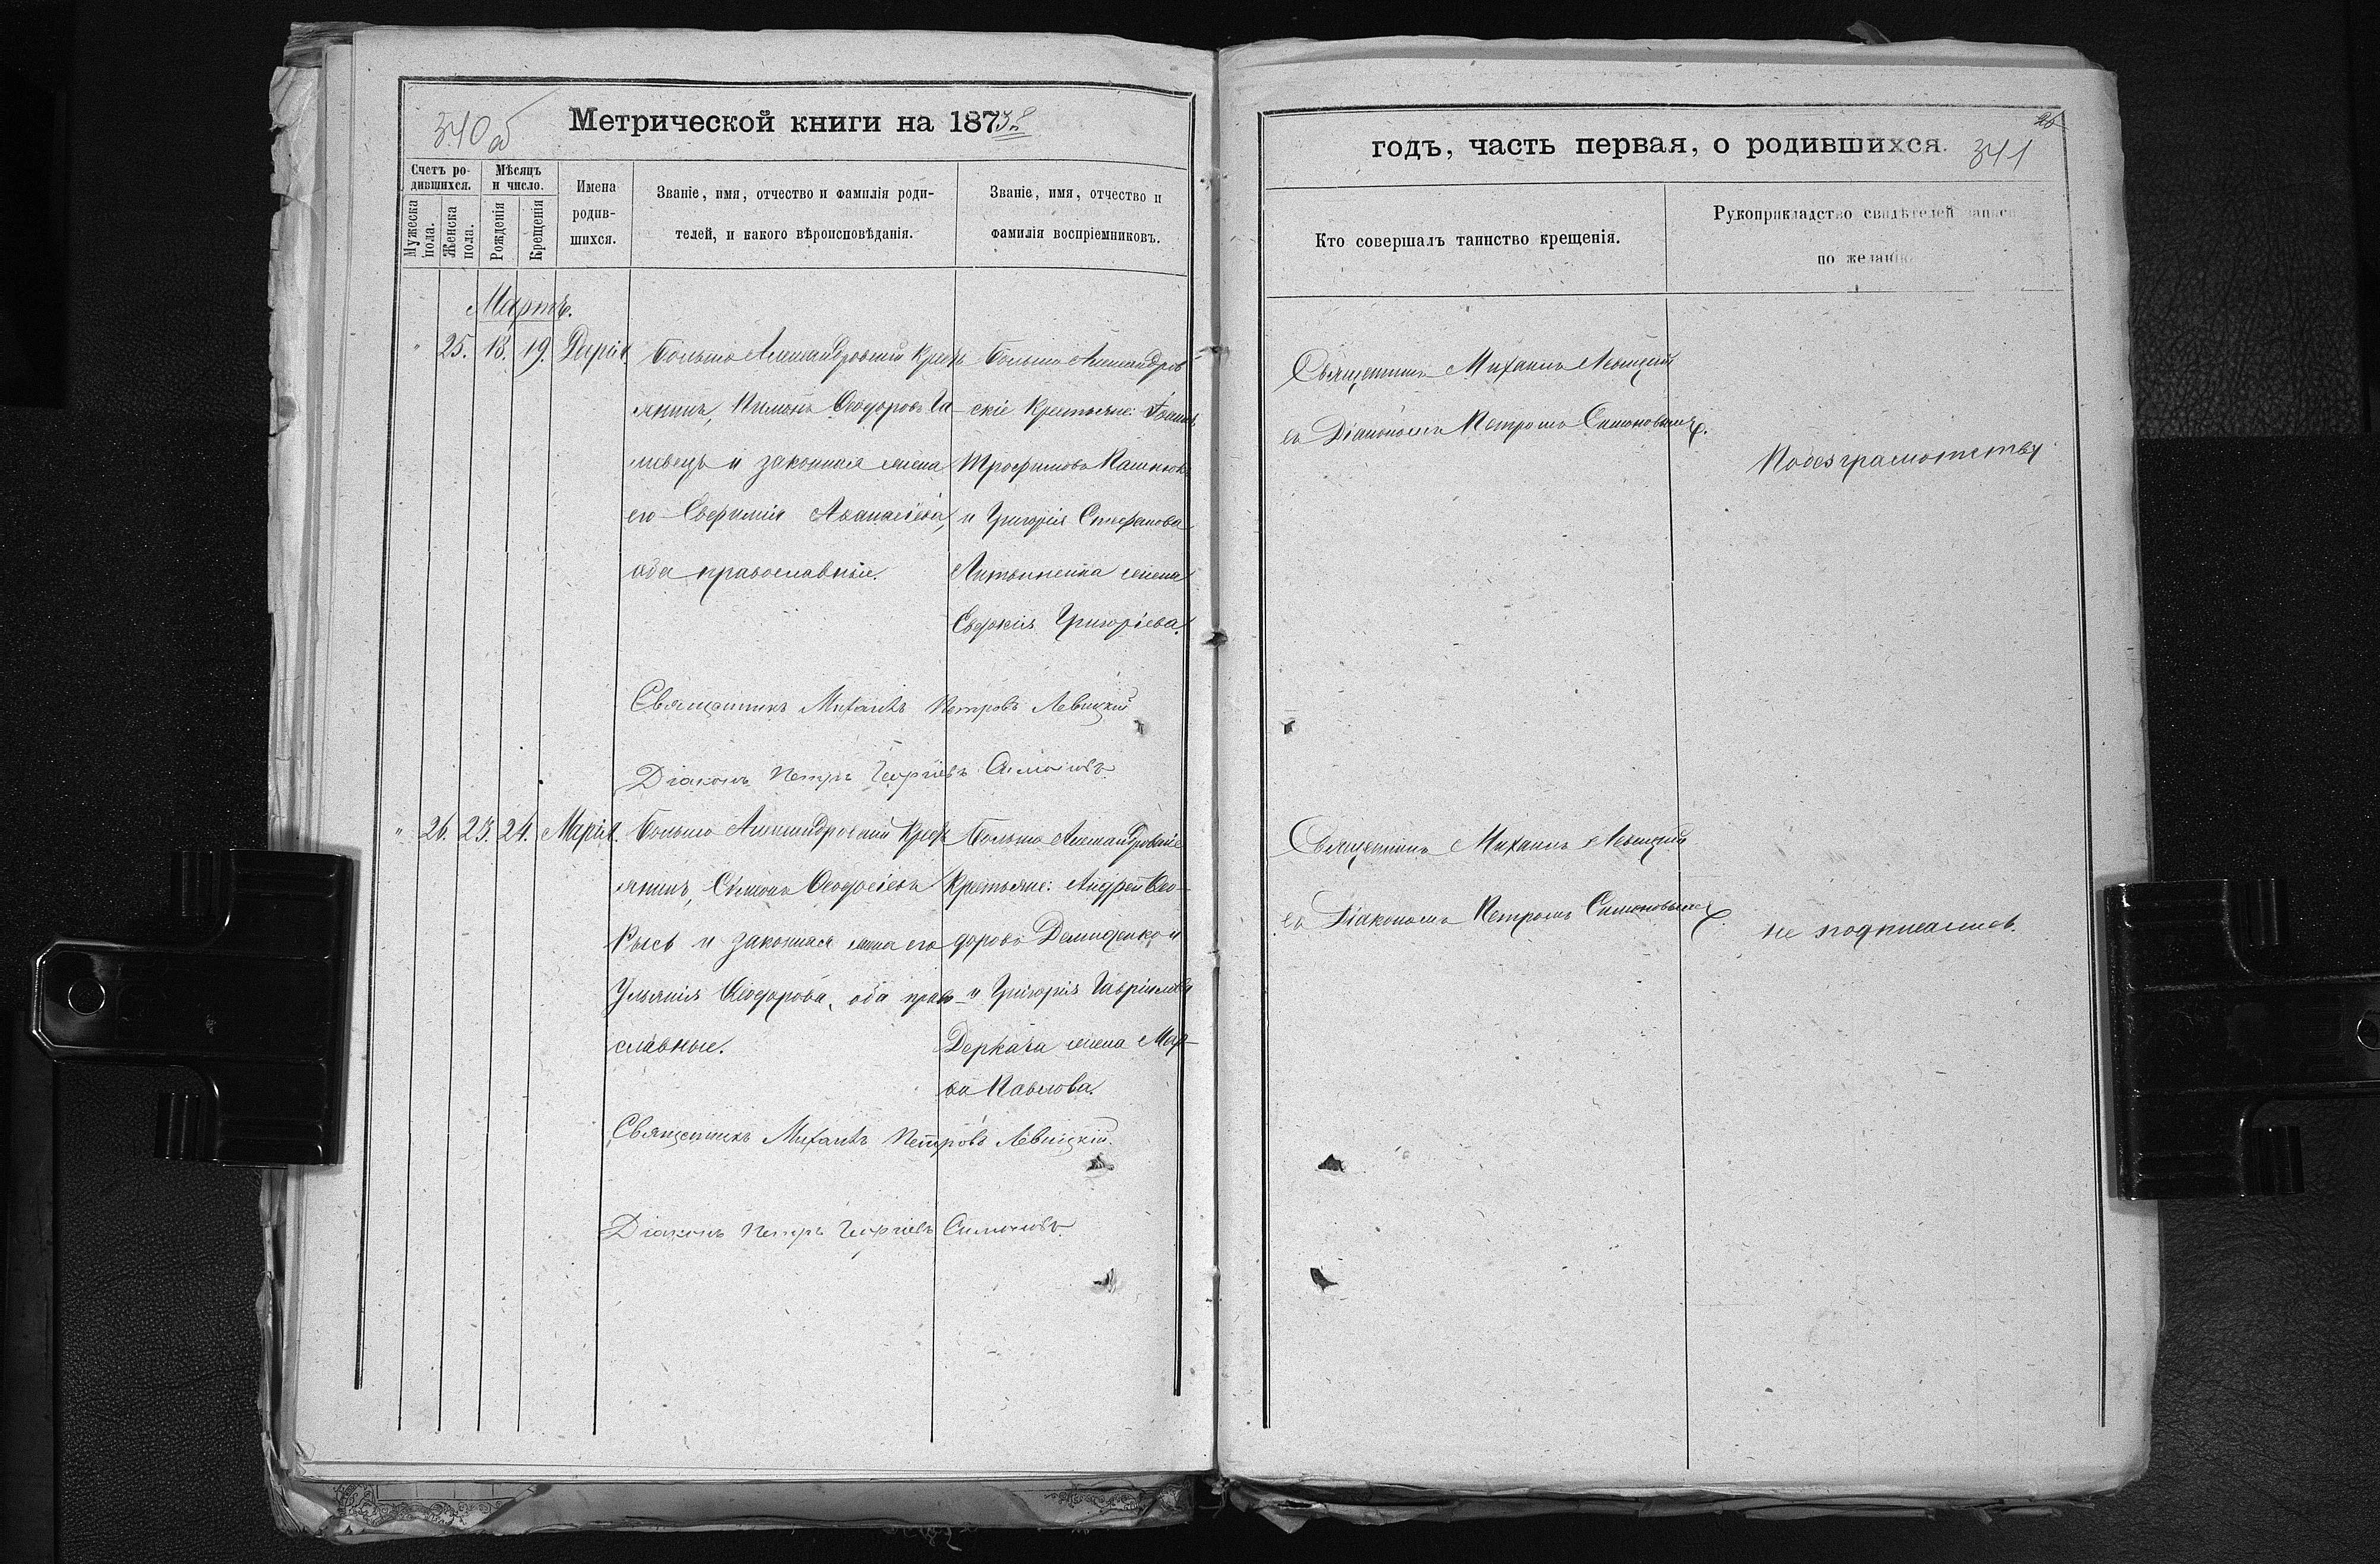 340об
Метрической книги на 1873й
Счетъ ро-
дившихся.
Мѣсяцъ
и число.
Мужеска
пола.
Женска
пола.
Рожденія
Крещенія
Имена
родив-
шихся.
Званіе, имя, отчество и фамилія роди-
телей, и какого вѣроисповѣданія.
Званіе, имя, отчество и
фамилія воспріемниковъ.
Мартъ.
" 25. 18. 19. Дарія.
Больше Александровскій Крест
янинъ, Пименъ Ѳеодоровъ Га-
ливецъ и законная жена
его Евфимія Аѳанасіева,
оба православные.
Больше Александров
скіе Крестьяне: Іоаннъ
Трофимовъ
и Григорія Стефанова
жена
Евдокія Григоріева.
Священникъ Михаилъ Петровъ Левицкій
Діаконъ Петръ Георгіевъ Симоновъ
" 26. 23. 24. Марія.
Больше Александровскій Крест
янинъ, Симонъ Ѳеодосіевъ
Рысь и законная жена его
Ульянія Ѳеодорова, оба право-
славные.
Больше Александровскіе
Крестьяне: Андрей Ѳео-
доровъ Демиденко и
и Григорія Гавріилова
Деркача жена Мар-
ѳа Павлова.
Священникъ Михаилъ Петровъ Левицкій.
Діаконъ Петръ Георгіевъ Симоновъ
26
годъ, часть первая, о родившихся. 341
Кто совершалъ таинство крещенія.
Рукоприкладство свидѣтелей записи
по желанію.
Священникъ Михаилъ Левицкій
съ Діакономъ Петромъ Симоновымъ.
По безграмотству
Священникъ Михаилъ Левицкій
съ Діакономъ Петромъ Симоновымъ
не подписались.